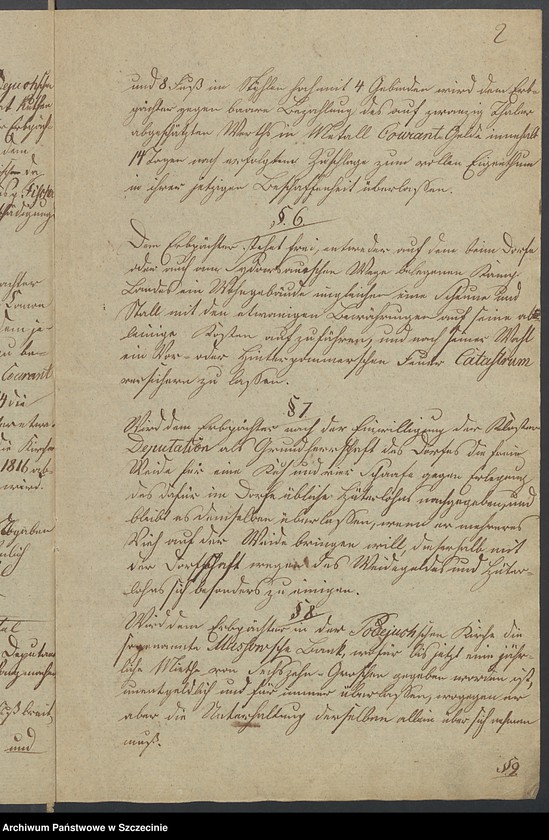 2
und 8 Fuß im Stiehlen hoch mit 4 Gebinden wird dem Erb-
pächter gegen baare Bezahlung des auf zwanzig Thaler
abgeschätzten Werths in Metall Courant Gelde innerhalb
14 Tagen nach erfolgtem Zuschlage zum vollen Eigenthum
in ihrer jetzigen Beschaffenheit überlassen.
§. 6
Dem Erbpächter stehet frei, entweder auf dem beim Dorfe
oder auch am Sydowsaueschen Wege belegenen Kamp
Landes ein Wohngebäude imgleichen eine Scheune und
Stall mit den etwanigen Bewährungen auf seine al-
leinige Kosten aufzuführen, und nach seiner Wahl
ein Vor- oder Hinterpommerschen Feuer Catastrum
versichern zu lassen.
§ 7
Wird dem Erbpächter nach der Einwilligung der Kloster
Deputation als Grundherrschaft des Dorfes die freie
Weide für eine Kuh und vier Schaafe gegen Erlegung
des dafür im Dorfe übliche Hüterlohns nachgegeben, und
bleibt es demselben überlassen, wenn er mehreres
Vieh auf der Weide bringen will, dieserhalb mit
der Dorfschaft wegen des Weidegeldes und Hüter-
lohns sich besonders zu einigen.
§ 8
Wird dem Erbpächter in der Podejuchschen Kirche die
sogenannte Massowsche Bank, wofür bis jetzt eine jähr-
liche Miethe von Sechszehn Groschen gegeben worden ist,
unentgeldlich und für immer überlassen, wogegen er
aber die Unterhaltung derselben allein über sich nehmen
muß.
§ 9
Courant
1816
und
Archiwum Państwowe w Szczecinie